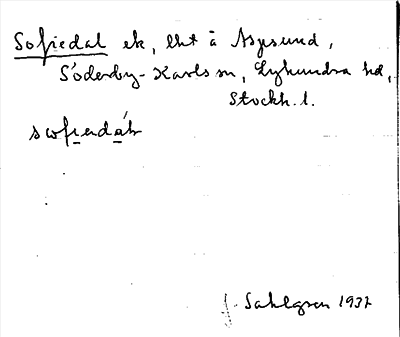 Sofiedal ek, lht å Asgesund,
Söderby-Karls sn, Lyhundra hd,
Stockh. l.
J. Sahlgren 1937